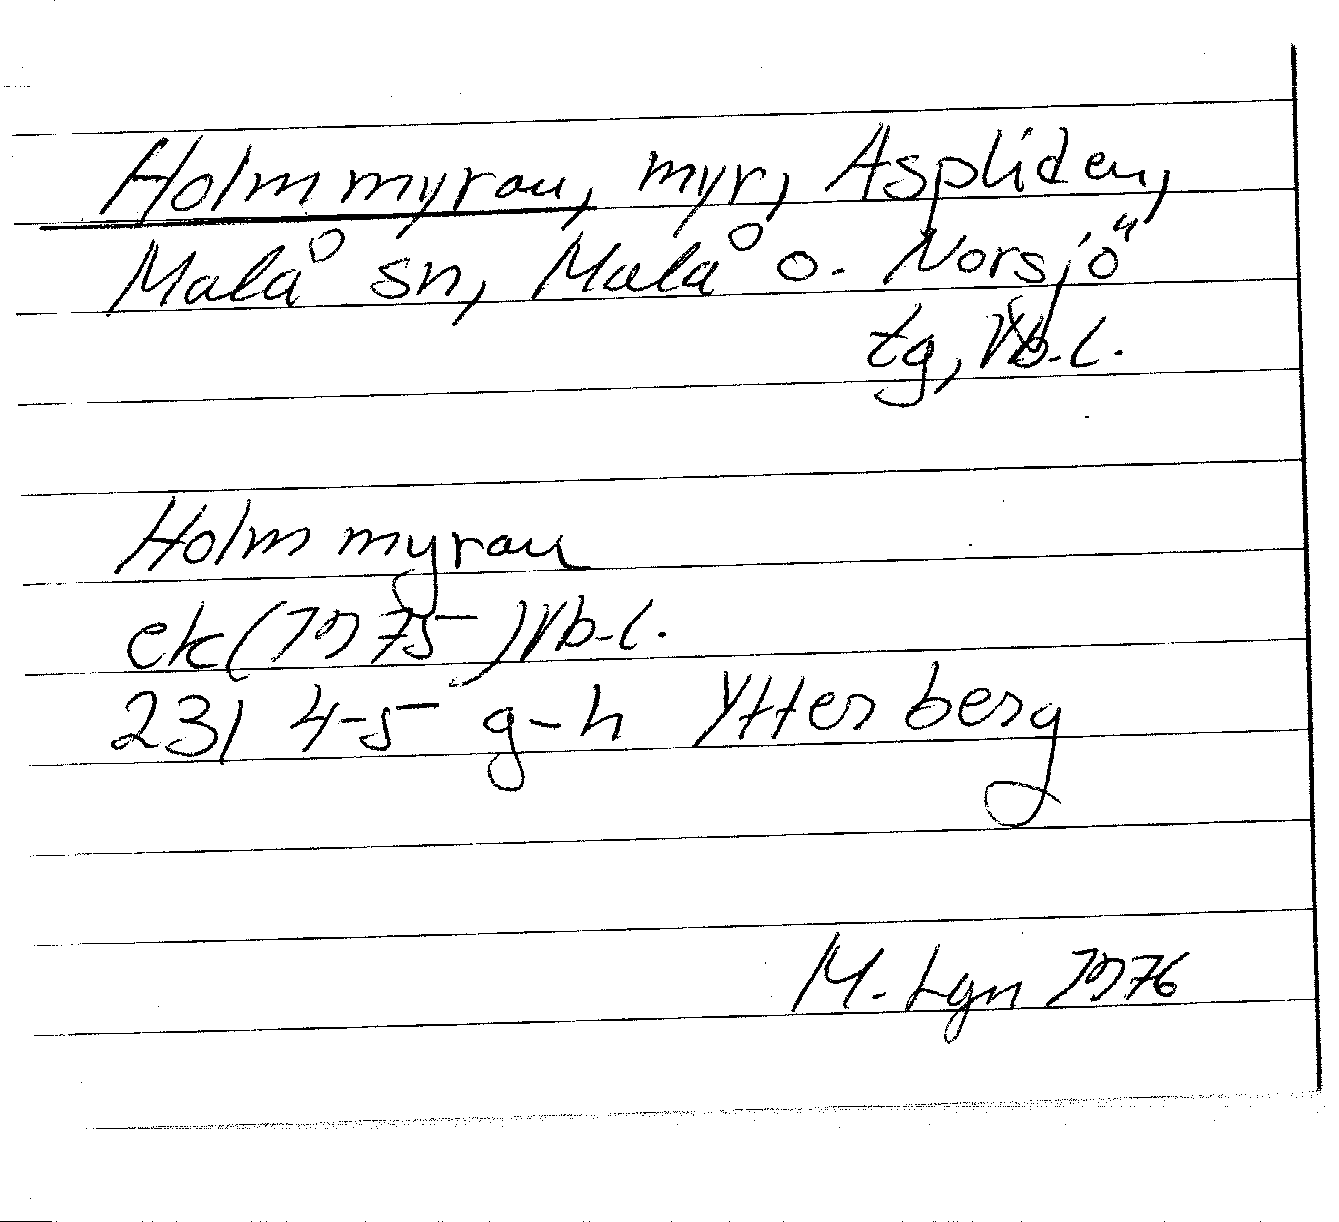 Holmmyran, myr, Aspliden,
Malå sn, Malå o. Norsjö
tg, Vb.l.
Holmmyran
ek (1975) Vb.l.
23I 4-5 g-h Ytterberg
M. Lgn 1976